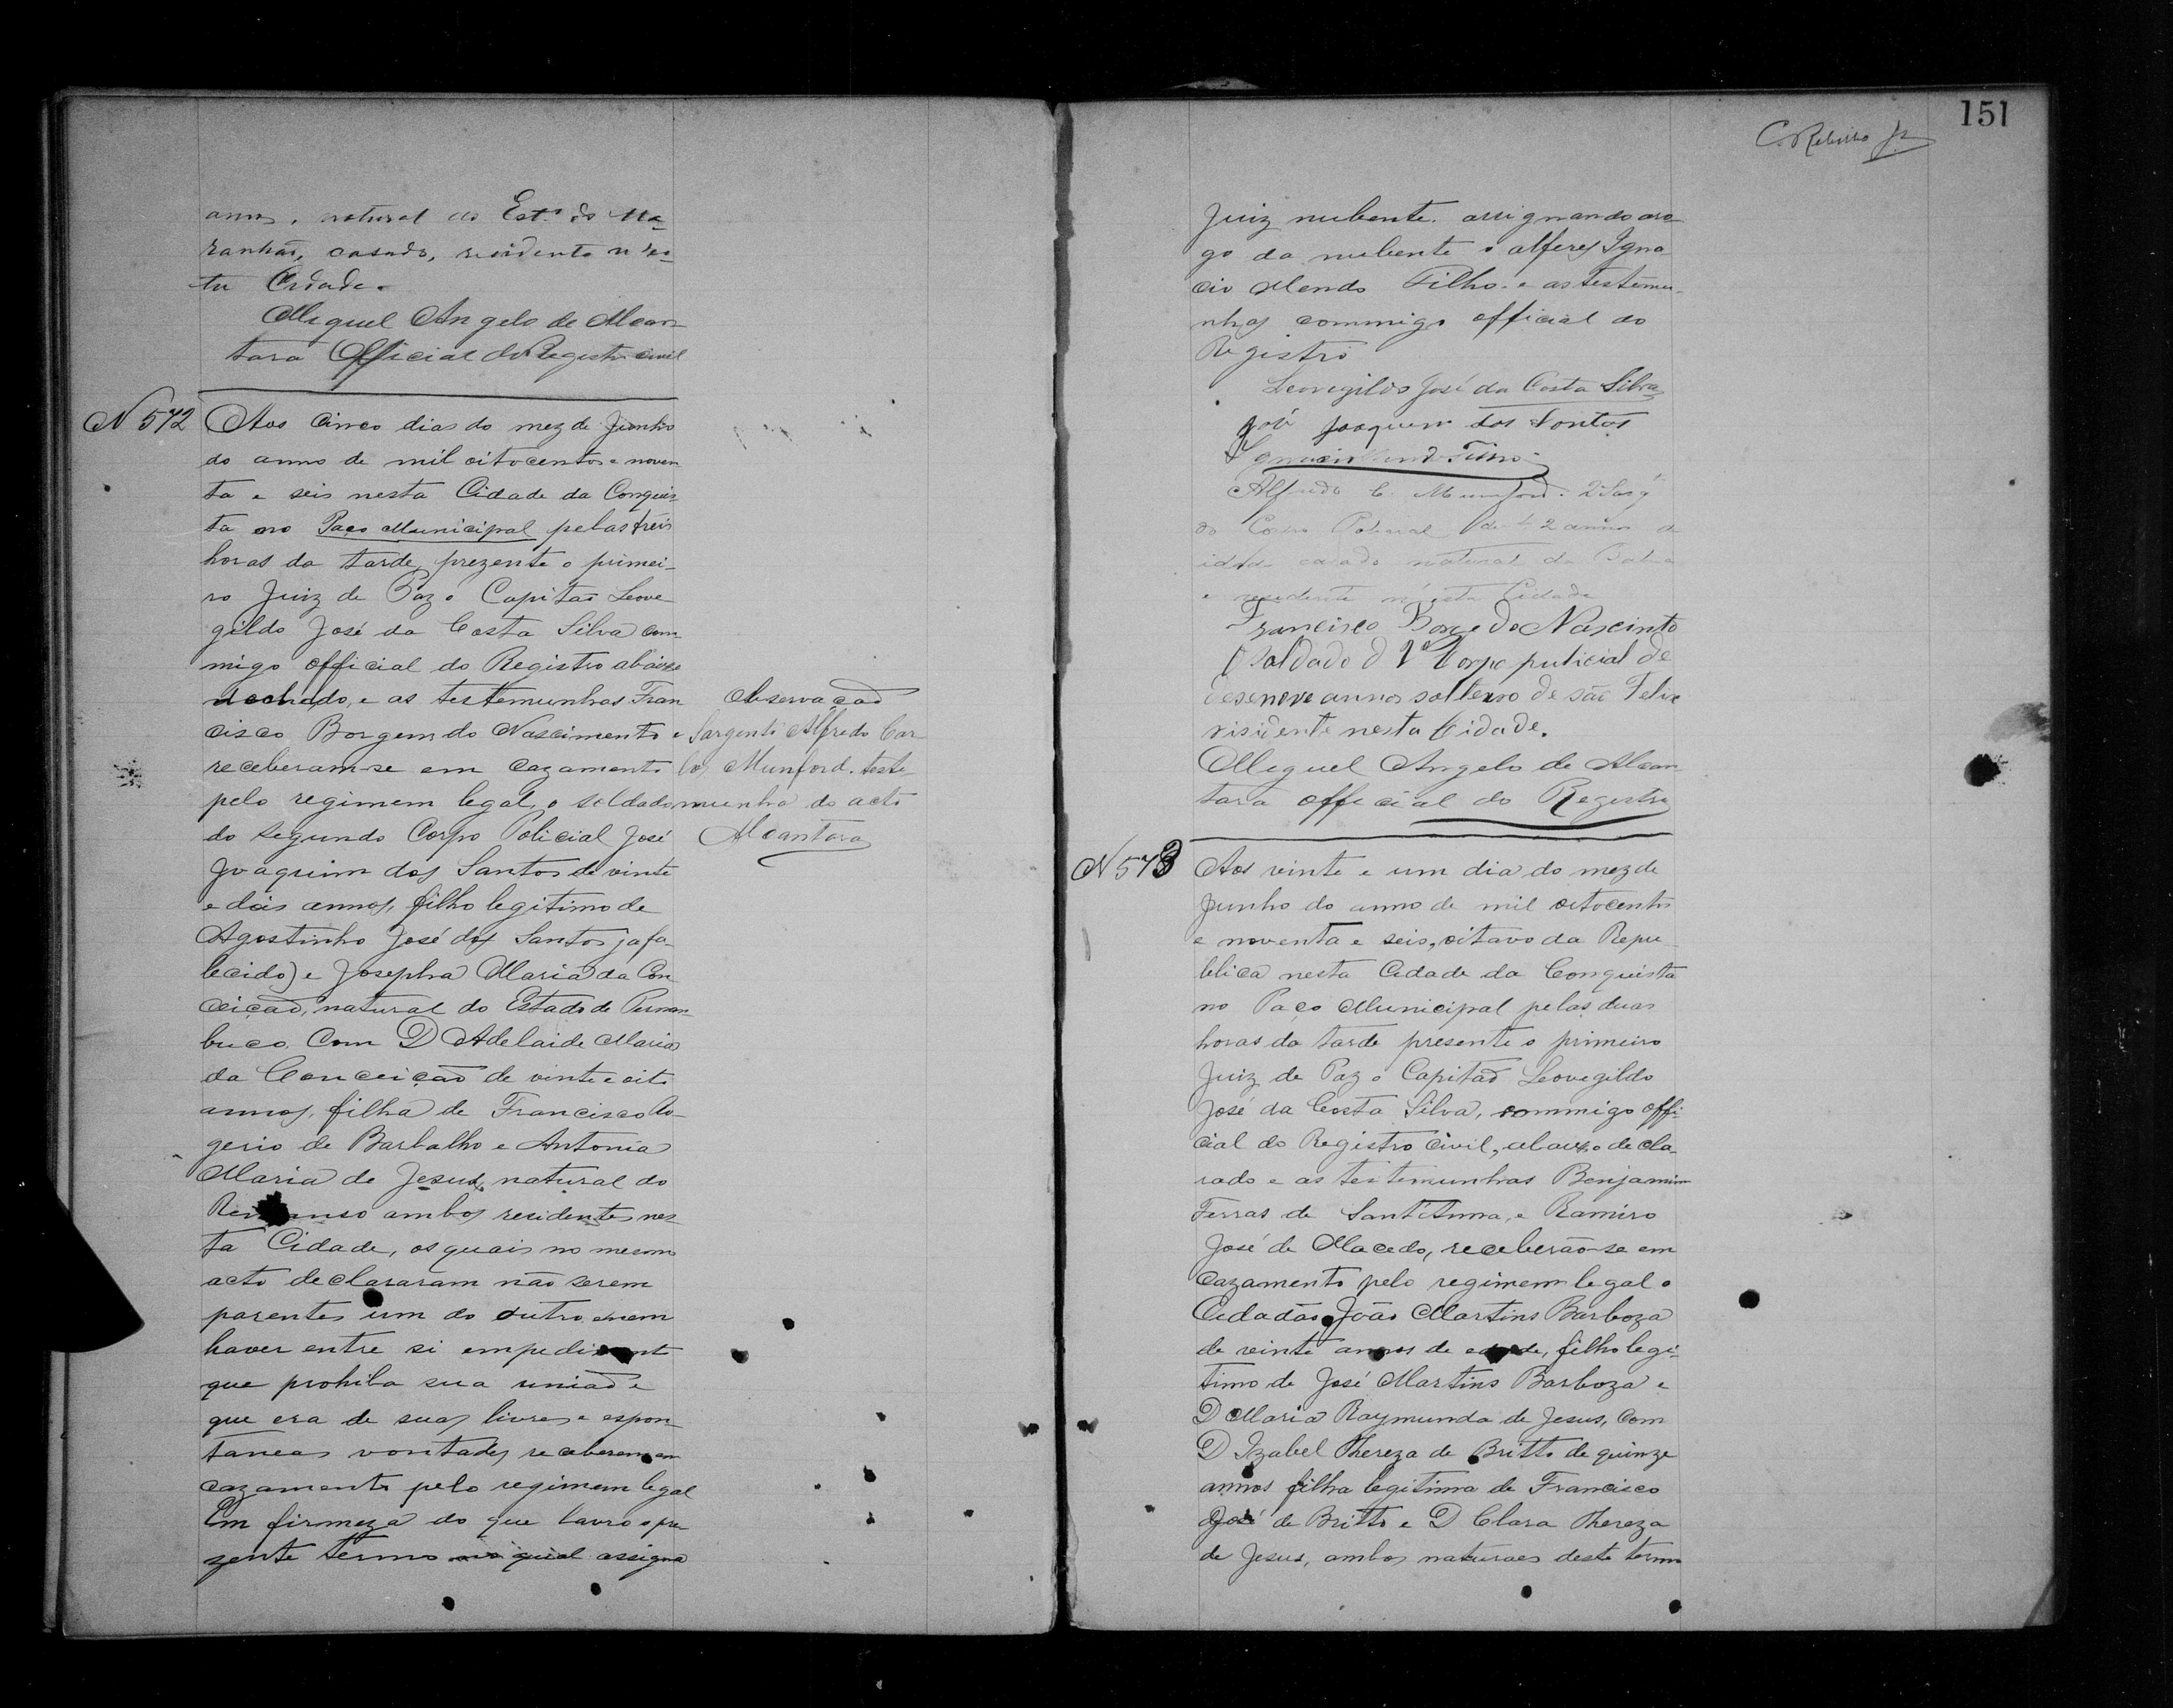 annos, natural do Est.º do Ma-
ranhão, casado, residente n'es-
ta Cidade.
Miguel Angelo de Alcan-
tara Official do Registro civil
N 572
Aos cinco dias do mez de Junho
do anno de mil oitocentos e noven
ta e seis nesta Cidade da Conquis-
ta no Paço Municipal pelas treis
horas da tarde, prezente o primei-
ro Juiz de Paz o Capitaõ Leove-
gildo José da Costa Silva com-
migo official do Registro abaixo
e as testemunhas Fran
cisco Borgem do Nascimento e
receberam-se em cazamento
pelo regimem legal, o soldado
do segundo Corpo Policial José
Joaquim dos Santos de vinte
e dois annos, filho legitimo de
Agostinho José dos Santos ja fa-
lecido) e Josepha Maria da Con
ceiçaõ, natural do Estado de Pernam-
buco. Com D Adelaide Maria
da Conceiçaõ de vinte e oito
annos, filha de Francisco Ro-
gerio de Barbalho e Antonia
Maria de Jesus, natural do
ambos residentes nes
ta Cidade, os quais no mesmo
acto declararam não serem
parentes um do outro, e nem
haver entre si empediment
que prohiba sua uniaõ e
que era de suas livres e espon-
taneas vontades receberem em
cazamento pelo regimem legal
Em firmeza do que lavro o pre-
zente termo no qual assigna
Observaçaõ
Sargento Alfredo Car
los Munford. teste-
munha do acto
Alcantara
151
C. Ribeiro Jr
Juiz nubente. assignando aro-
go da nubente o alferes Igna-
cio Mendo Filho. e as testemu-
nhas commigo official do
Registro
Leovegildo José da Costa Silva
José Joaquim dos Santos
Ignacio Mendo Filho
Alfredo C. Munford. 2º Sarg
do Corpo Policial de 42 annos de
idade casado natural da Bahia
e residente n'esta Cidade
Francisco Borge do Nascinto
Soldado d 2º Corpo pulicial de
desenove annos solteiro de são Felix
risidente nesta Cidade.
Miguel Angelo de Alcan
tara official do Registro
N 573
Aos vinte e um dia do mez de
Junho do anno de mil oitocentos
e noventa e seis, oitavo da Repu-
blica nesta Cidade da Conquista
no Paço Municipal pelas duas
horas da tarde presente o primeiro
Juiz de Paz o Capitaõ Leovegildo
José da Costa Silva, commigo offi-
cial do Registro civil, abaixo decla-
rado e as testemunhas Benjamim
Ferras de Sant'Anna, e Ramiro
José de Macedo, receberão-se em
cazamento pelo regimem legal o
Cidadão João Martins Barboza
de vinte annos de edade, filho legi-
timo de José Martins Barboza e
D Maria Raymunda de Jesus, com
D Izabel Thereza de Britto de quinze
annos filha legitima de Francisco
José de Britto e D Clara Thereza
de Jesus, ambos naturaes deste termo